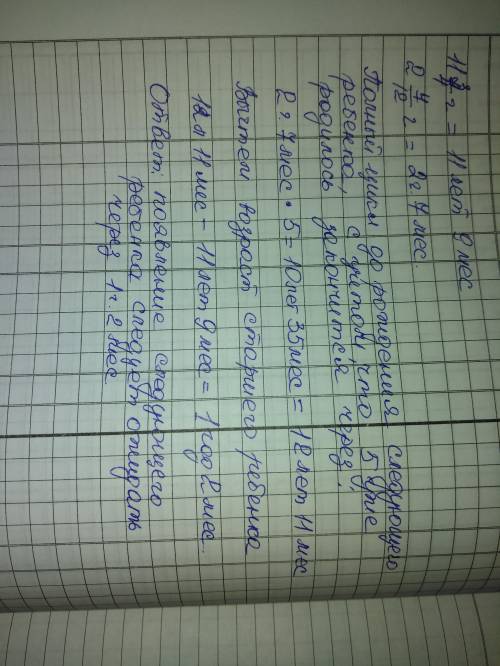 11 3/4 г = 11 лет 9 мес
2 7/12 г = 2г 7 мес.
Полный цикл до рождения следующего
ребенка, с учетом, что 5 уже
родилось закончится через:
2г 7 мес • 5 = 10 лет 35 мес = 12 лет 11 мес
Вычтем возраст старшего ребенка
12л 11 мес - 11 лет 9 мес = 1 год 2 мес.
Ответ: появление следующего
ребенка следует ожидать
через 1г. 2 мес